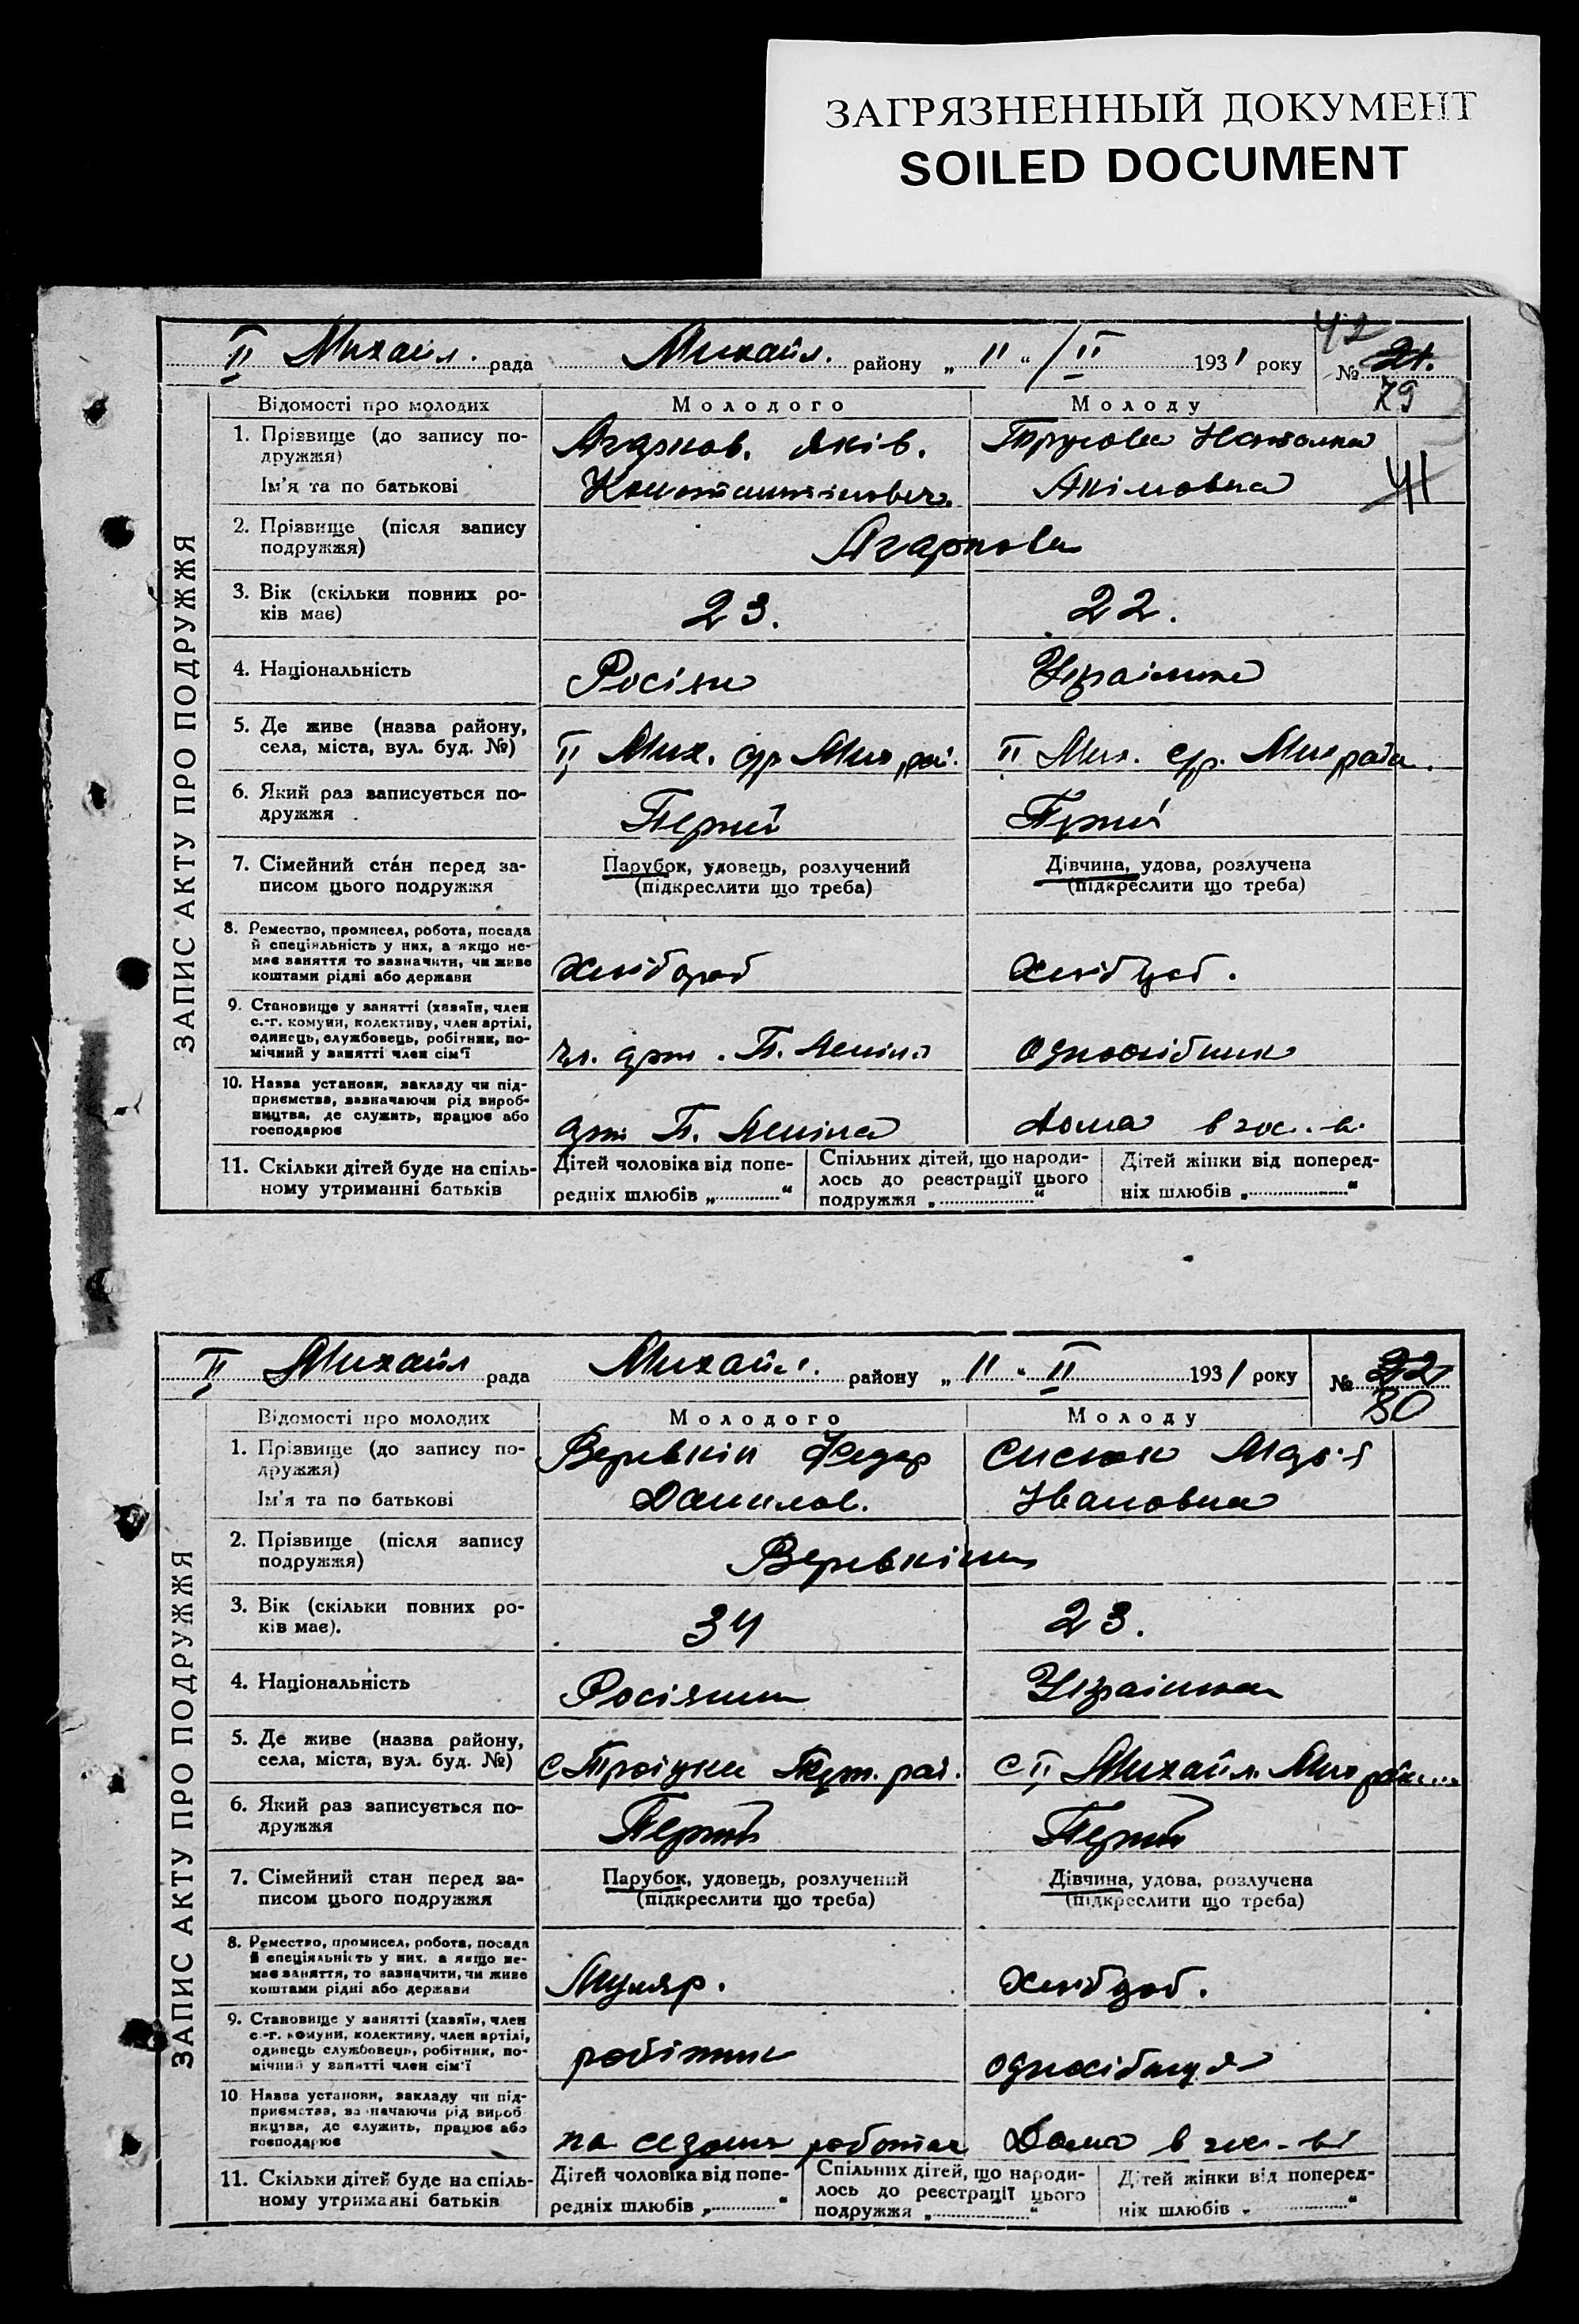 ЗАГРЯЗНЕННЫЙ ДОКУМЕНТ
SOILED DOCUMENT
II Михайл. рада Михайл. району „ 11 “ / II 1931 року № 21.
42
79
Відомості про молодих Молодого Молоду
ЗАПИС АКТУ ПРО ПОДРУЖЖЯ
1. Прізвище (до запису по- Агарков. Яків.
дружжя)
Ім’я та по батькові Константінович. Акімовна
41
2. Прізвище (після запису Агаркова
подружжя)
3. Вік (скільки повних ро- 23. 22.
ків має)
4. Національність Українка
5. Де живе (назва району,
села, міста, вул. буд. №) II Мих. с/р Мих рай. II Мих. с/р. Мих
6. Який раз записується по-
дружжя Перший
7. Сімейний стáн перед за- Парубок, удовець, розлучений Дівчина, удова, розлучена
писом цього подружжя (підкреслити що треба) (підкреслити що треба)
8. Ремество, промисел, робота, посада
й спеціяльність у них, а якщо не-
має заняття то зазначити, чи живе
коштами рідні або держави Хлібороб Хлібороб.
9. Становище у занятті (хазяїн, член
с.-г. комуни, колективу, член артілі,
одинець, службовець, робітник, по-
мічний у занятті член сім’ї чл. арт. П. Леніна односібник
10. Назва установи, закладу чи під-
приємства, зазначаючи рід вироб-
ництва, де служить, працює або
господарює арт П. Леніна Дома в гос.-ві
11. Скільки дітей буде на спіль- Дітей чоловіка від попе- Спільних дітей, що народи- Дітей жінки від поперед-
ному утриманні батьків редніх шлюбів „ “ лось до реєстрації цього ніх шлюбів „ “
подружжя „ “
II Михайл рада Михайл. району „ 11 “ II 1931 року № 22
80
Відомості про молодих Молодого Молоду
ЗАПИС АКТУ ПРО ПОДРУЖЖЯ
1. Прізвище (до запису по- Веревкін Федор Сисюк
дружжя)
Ім’я та по батькові Данилов. Івановна
2. Прізвище (після запису Веревкіни
подружжя)
3. Вік (скільки повних ро- 34 23.
ків має).
4. Національність Росіянин Українка
5. Де живе (назва району,
села, міста, вул. буд. №) с Троіцки рай. с II Михайл. Мих
6. Який раз записується по-
дружжя Перший Перший
7. Сімейний стан перед за- Парубок, удовець, розлучений Дівчина, удова, розлучена
писом цього подружжя (підкреслити що треба) (підкреслити що треба)
8. Ремество, промисел, робота, посада
й спеціяльність у них, а якщо не-
має заняття, то зазначити, чи живе
коштами рідні або держави Муляр. Хлібороб.
9. Становище у занятті (хазяїн, член
с.-г. комуни, колективу, член артілі,
одинець службовець, робітник, по-
мічний у занятті член сім’ї робітник односібниця
10 Назва установи, закладу чи під-
приємства, зазначаючи рід вироб
ництва, де служить, працює або
господарює на сезонн роботах Дома в гос.-ві
11. Скільки дітей буде на спіль- Дітей чоловіка від попе- Спільних дітей, що народи- Дітей жінки від поперед-
ному утриманні батьків редніх шлюбів „ “ лось до реєстрації цього ніх шлюбів „ “
подружжя „ “